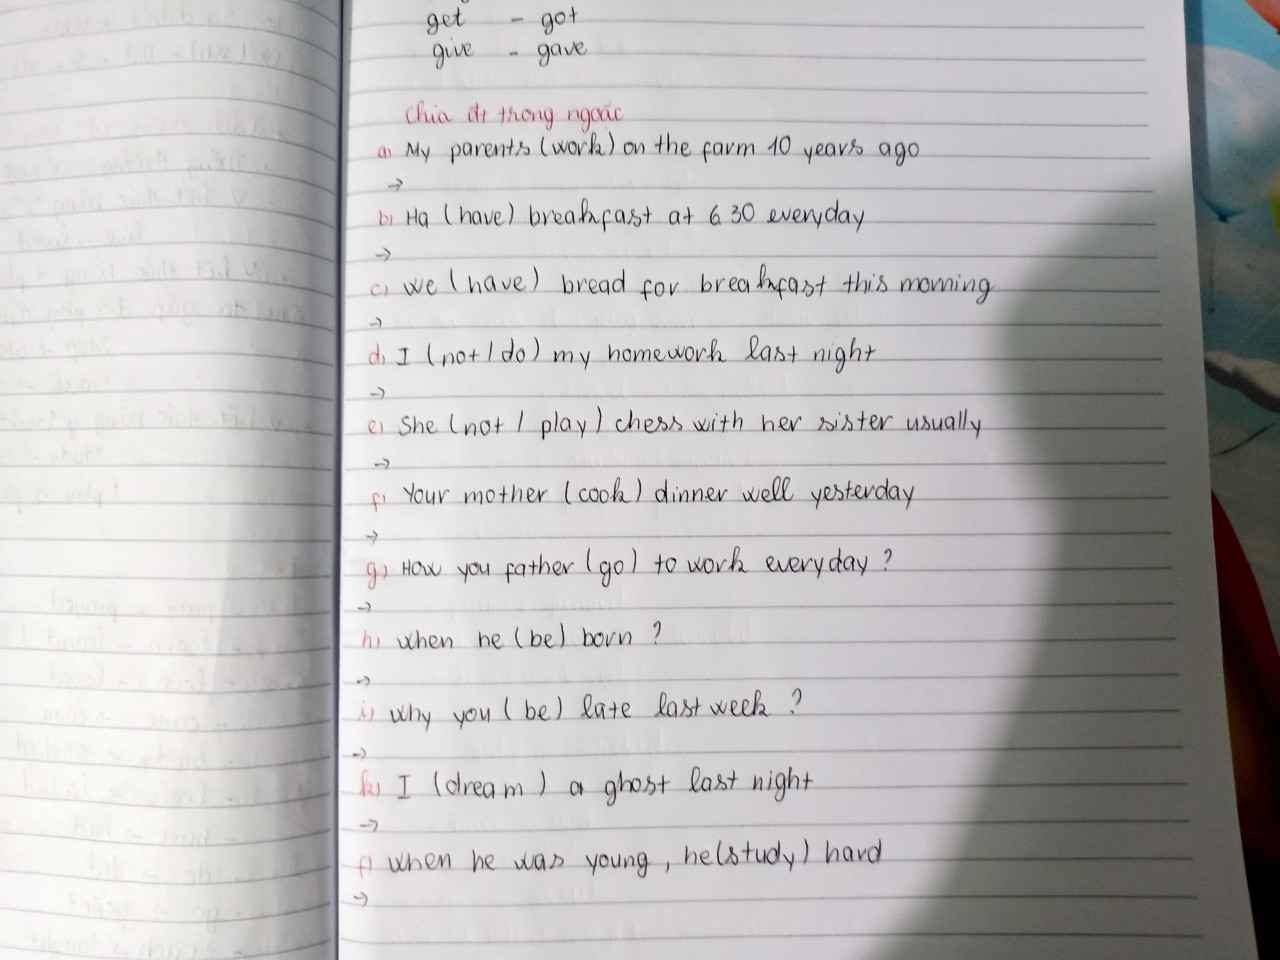 get - got
give - gave
Chia đt trong ngoặc
a) My parents (work) on the farm 10 years ago
→
b) Ha (have) breakfast at 6 30 everyday
→
c) We (have) bread for breakfast this morning
→
d) I (not / do) my homework last night
→
e) She (not / play) chess with her sister usually
→
f) Your mother (cook) dinner well yesterday
→
g) How you father (go) to work everyday ?
→
h) when he (be) born ?
→
i) Why you (be) late last week ?
→
k) I (dream) a ghost last night
→
l) when he was young, he (study) hard
→